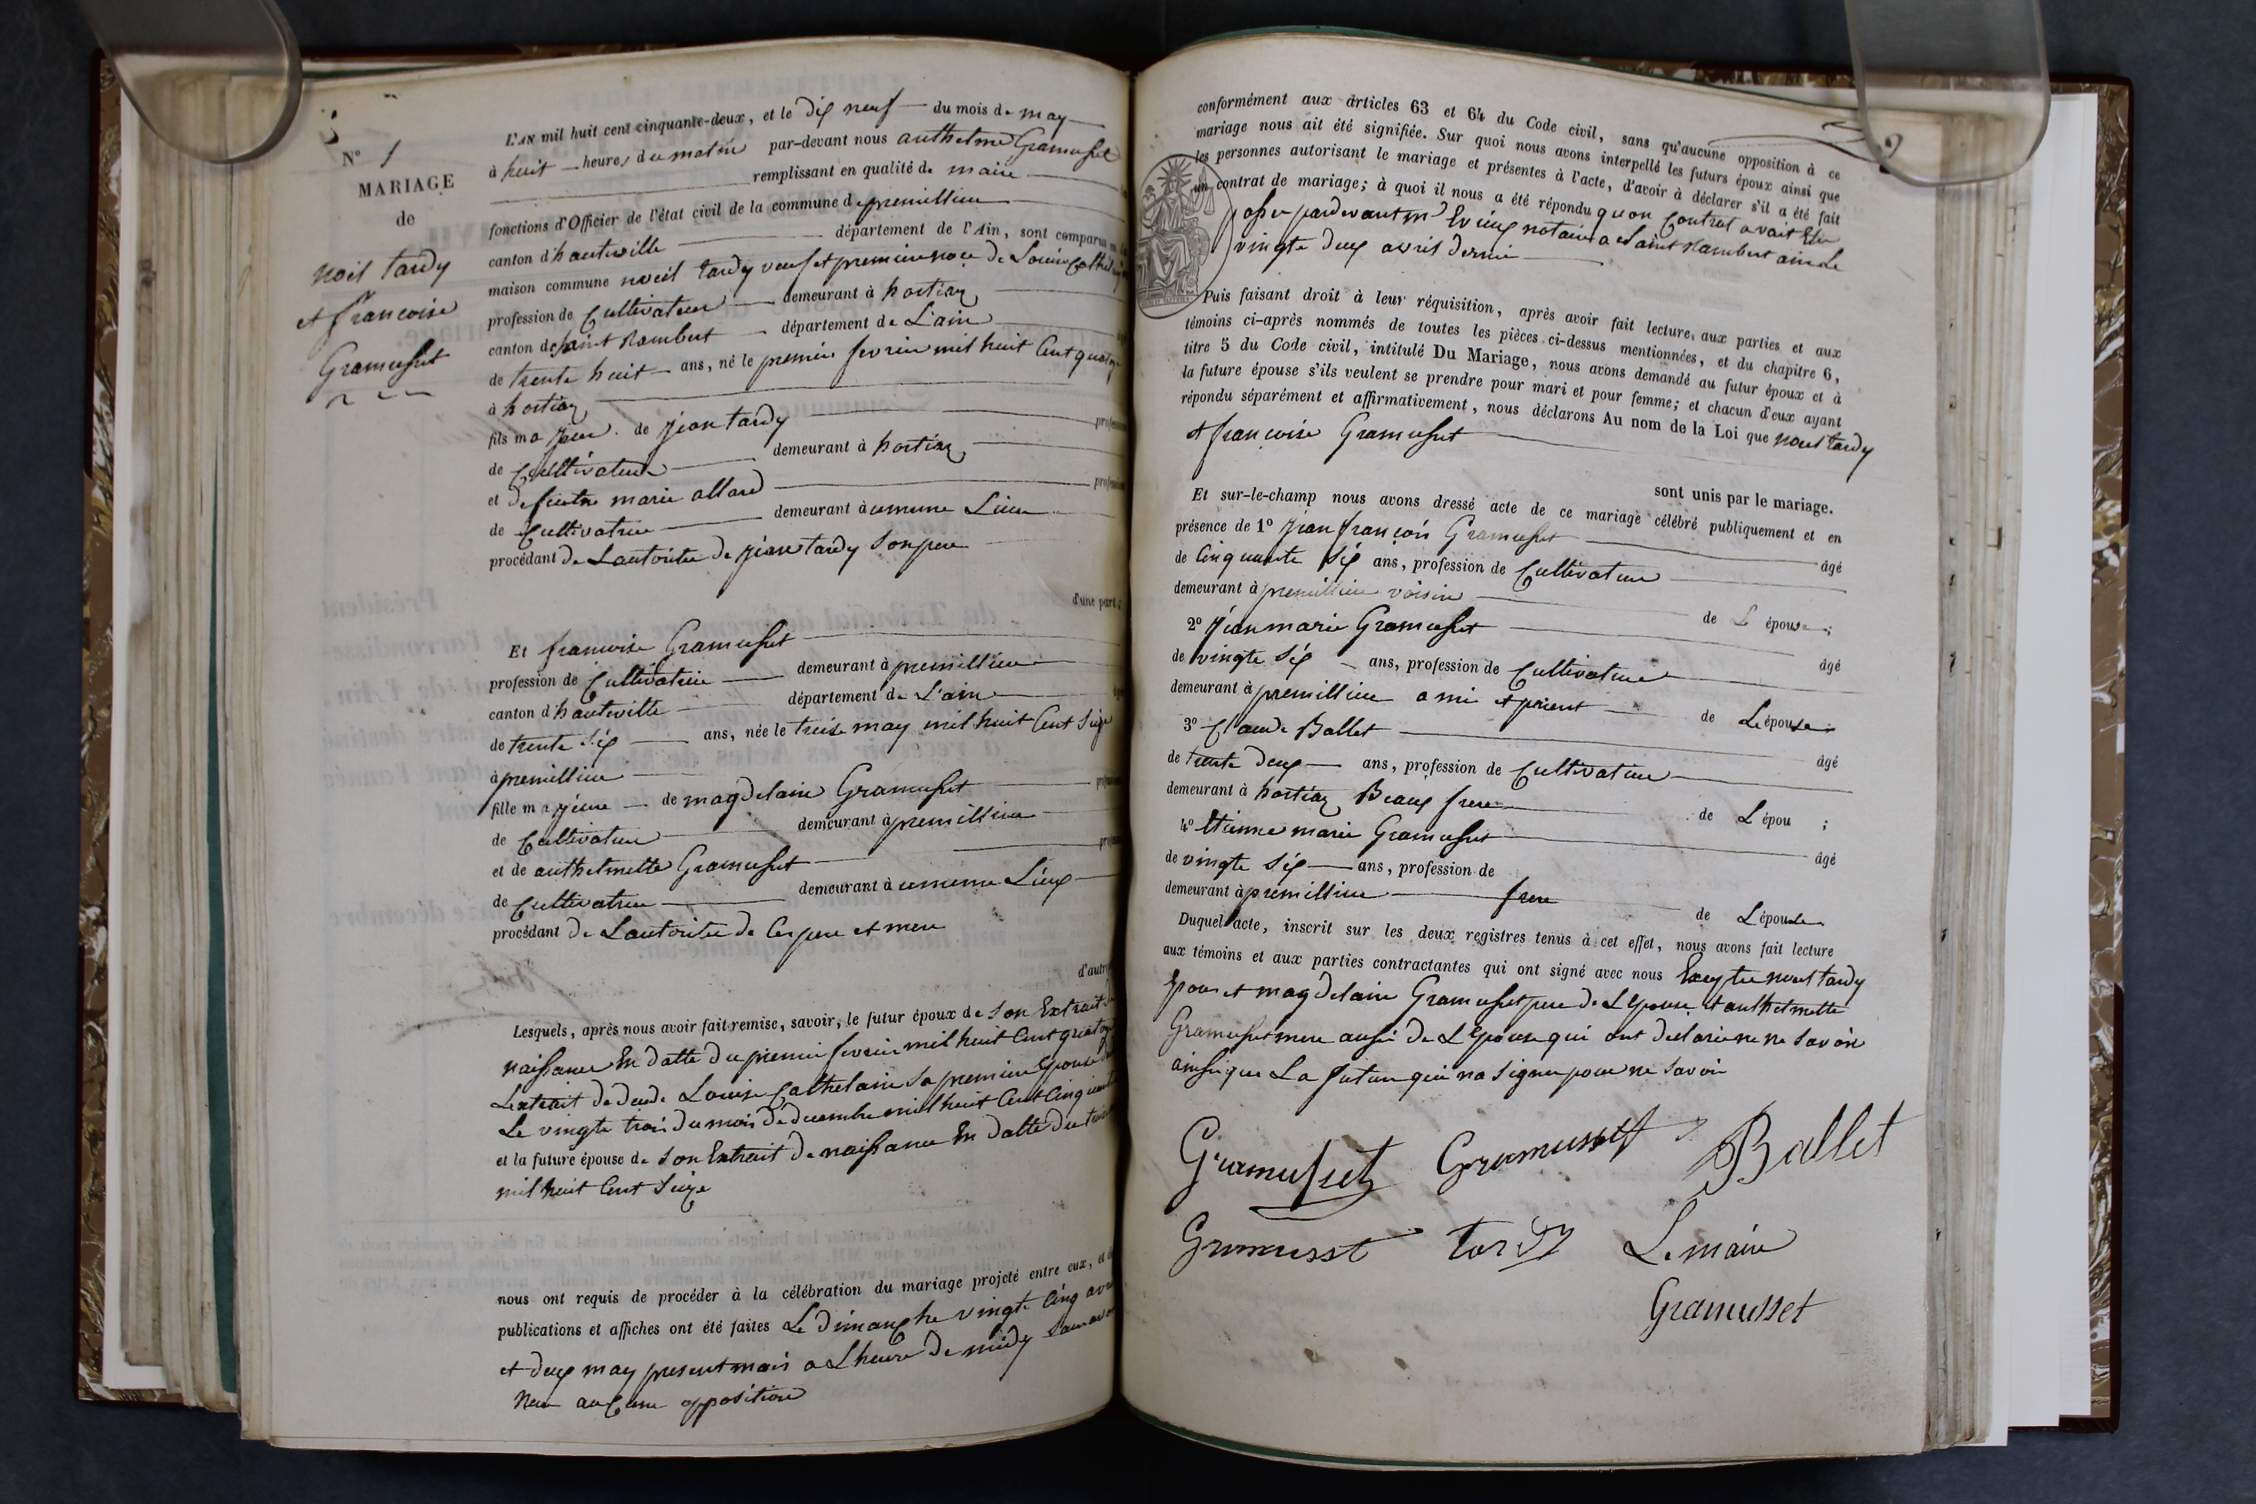 N° 1
MARIAGE
de
noël tardy
et francoise
Gramusset
L'AN mil huit cent cinquante-deux, et le dix neuf du mois de may
à huit heures du matin par-devant nous anthelme Gramusset
remplissant en qualité de maire
fonctions d'Officier de l'état civil de la commune de premillieu
canton d'hauteville département de l'Ain, sont comparus en
maison commune noël tardy veuf et premiere noce de Louise Cathelain
profession de Cultivateur demeurant à hostiaz
canton de saint Rambert département de L'ain
de trente huit ans, né le premier fevrier mil huit Cent quatorze
à hostiaz
fils majeur de jean tardy
de Cultivateur demeurant à hostiaz
et défunte marie allard
de Cultivatrice demeurant à meme Lieu
procédant de Lautorité de jean tardy son pere
d'une part;
Et francoise Gramusset
profession de Cultivatrice demeurant à premillieu
canton d'hauteville département de L'ain
de trente six ans, née le treize may mil huit Cent Seize
à premillieu
fille majeure de magdelain Gramusset
de Cultivateur demeurant à premillieu
et de anthelmette Gramusset
de Cultivatrice demeurant à meme Lieux
procédant de Lautorité de Ces pere et mere
d'autre
Lesquels, après nous avoir fait remise, savoir, le futur époux de son Extrait de
naissance En datte du premier fevrier mil huit Cent quatorze
Lextrait de deces de Louise Cathelain sa premiere Epouse
Le vingte trois du mois de decembre mil huit Cent Cinquante
et la future épouse de son Extrait de naissance En datte du treize
mil huit Cent Seize
nous ont requis de procéder à la célébration du mariage projeté entre eux, et
publications et affiches ont été faites Le dimanche vingte Cinq avril
et deux may present mois a Lheure de midy
aucune opposition
conformément aux articles 63 et 64 du Code civil, sans qu'aucune opposition à ce
mariage nous ait été signifiée. Sur quoi nous avons interpellé les futurs époux ainsi que
les personnes autorisant le mariage et présentes à l'acte, d'avoir à déclarer s'il a été fait
un contrat de mariage; à quoi il nous a été répondu qu on Contrat avait Eté
passer pardevant me notaire a Saint Rambert ain Le
vingte deux avril dernier
Puis faisant droit à leur réquisition, après avoir fait lecture, aux parties et aux
témoins ci-après nommés de toutes les pièces ci-dessus mentionnées, et du chapitre 6,
titre 5 du Code civil, intitulé Du Mariage, nous avons demandé au futur époux et à
la future épouse s'ils veulent se prendre pour mari et pour femme; et chacun d'eux ayant
répondu séparément et affirmativement, nous déclarons Au nom de la Loi que noel tardy
et françoise Gramusset
sont unis par le mariage.
Et sur-le-champ nous avons dressé acte de ce mariage célébré publiquement et en
présence de 1° jean françois Gramusset âgé
de Cinquante six ans, profession de Cultivateur
demeurant à premillieu voisin de L épouse;
2° jean marie Gramusset âgé
de vingte six ans, profession de Cultivateur
demeurant à premillieu ami et parent de L épouse
3° Claude Ballet âgé
de trente deux ans, profession de Cultivateur
demeurant à hostiaz Beaux frere de L épou ;
4° Etienne marie Gramusset âgé
de vingte six ans, profession de
demeurant à premillieu frere de L épouse
Duquel acte, inscrit sur les deux registres tenus à cet effet, nous avons fait lecture
aux témoins et aux parties contractantes qui ont signé avec nous Excepter noel tardy
Epoux et magdelain Gramusset pere de L Epouse et anthelmette
Gramusset mere aussi de L Epouse qui ont declarer ne Savoir
ainsi que La future qui na signer pour ne Savoir
Gramusset Gramusset Ballet
Gramusst tardy Le maire
Gramusset